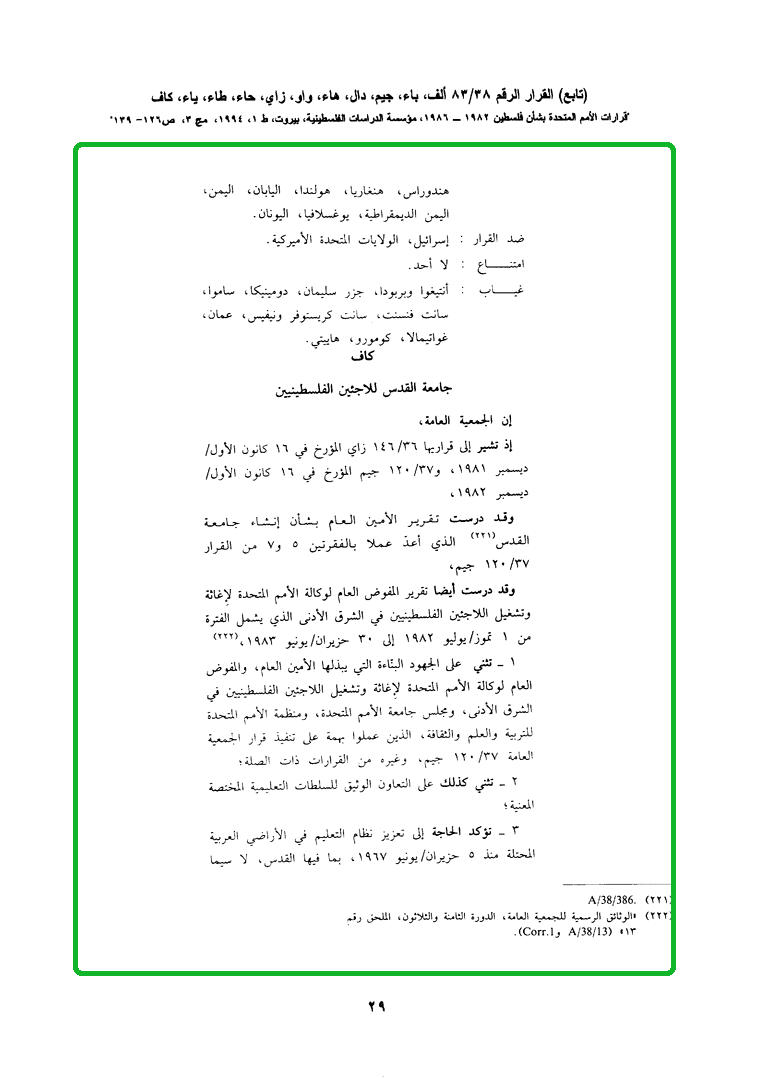 (تابع) القرار الرقم ٨٣/٣٨ ألف، باء، جيم، دال، هاء، واو، زاي، حاء، طاء، ياء، كاف
"قرارات الأمم المتحدة بشأن فلسطين ١٩٨٢ – ١٩٨٦، مؤسسة الدراسات الفلسطينية، بيروت، ط ١، ١٩٩٤، مج ٣، ص١٢٦- ١٣٩"
هندوراس، هنغاريا، هولندا، اليابان، اليمن،
اليمن الديمقراطية، يوغسلافيا، اليونان.
ضد القرار : إسرائيل، الولايات المتحدة الأميركية.
امتنـــــاع : لا أحد.
غيــــاب : أنتيغوا وبربودا، جزر سليمان، دومينيكا، ساموا،
سانت فنسنت، سانت كريستوفر ونيفيس، عمان،
غواتيمالا، كومورو، هاييتي.
كاف
جامعة القدس للاجئين الفلسطينيين
إن الجمعية العامة،
إذ تشير إلى قراريها ١٤٦/٣٦ زاي المؤرخ في ١٦ كانون الأول/
ديسمبر ١٩٨١، و١٢٠/٣٧ جيم المؤرخ في ١٦ كانون الأول/
ديسمبر ١٩٨٢،
وقد درست تقرير الأمين العام بشأن إنشاء جامعة
القدس(٢٢١) الذي أعدّ عملا بالفقرتين ٥ و٧ من القرار
١٢٠/٣٧ جيم،
وقد درست أيضا تقرير المفوض العام لوكالة الأمم المتحدة لإغاثة
وتشغيل اللاجئين الفلسطينيين في الشرق الأدنى الذي يشمل الفترة
من ١ تموز/يوليو ١٩٨٢ إلى ٣٠ حزيران/يونيو ١٩٨٣،(٢٢٢)
١ ـ تثني على الجهود البنّاءة التي يبذلها الأمين العام، والمفوض
العام لوكالة الأمم المتحدة لإغاثة وتشغيل اللاجئين الفلسطينيين في
الشرق الأدنى، ومجلس جامعة الأمم المتحدة، ومنظمة الأمم المتحدة
للتربية والعلم والثقافة، الذين عملوا بهمة على تنفيذ قرار الجمعية
العامة ١٢٠/٣٧ جيم، وغيره من القرارات ذات الصلة؛
٢ ـ تثني كذلك على التعاون الوثيق للسلطات التعليمية المختصة
المعنية؛
٣ ـ تؤكد الحاجة إلى تعزيز نظام التعليم في الأراضي العربية
المحتلة منذ ٥ حزيران/يونيو ١٩٦٧، بما فيها القدس، لا سيما
(٢٢١) A/38/386.
(٢٢٢) «الوثائق الرسمية للجمعية العامة، الدورة الثامنة والثلاثون، الملحق رقم
١٣» (A/38/13 وCorr.1).
٢٩